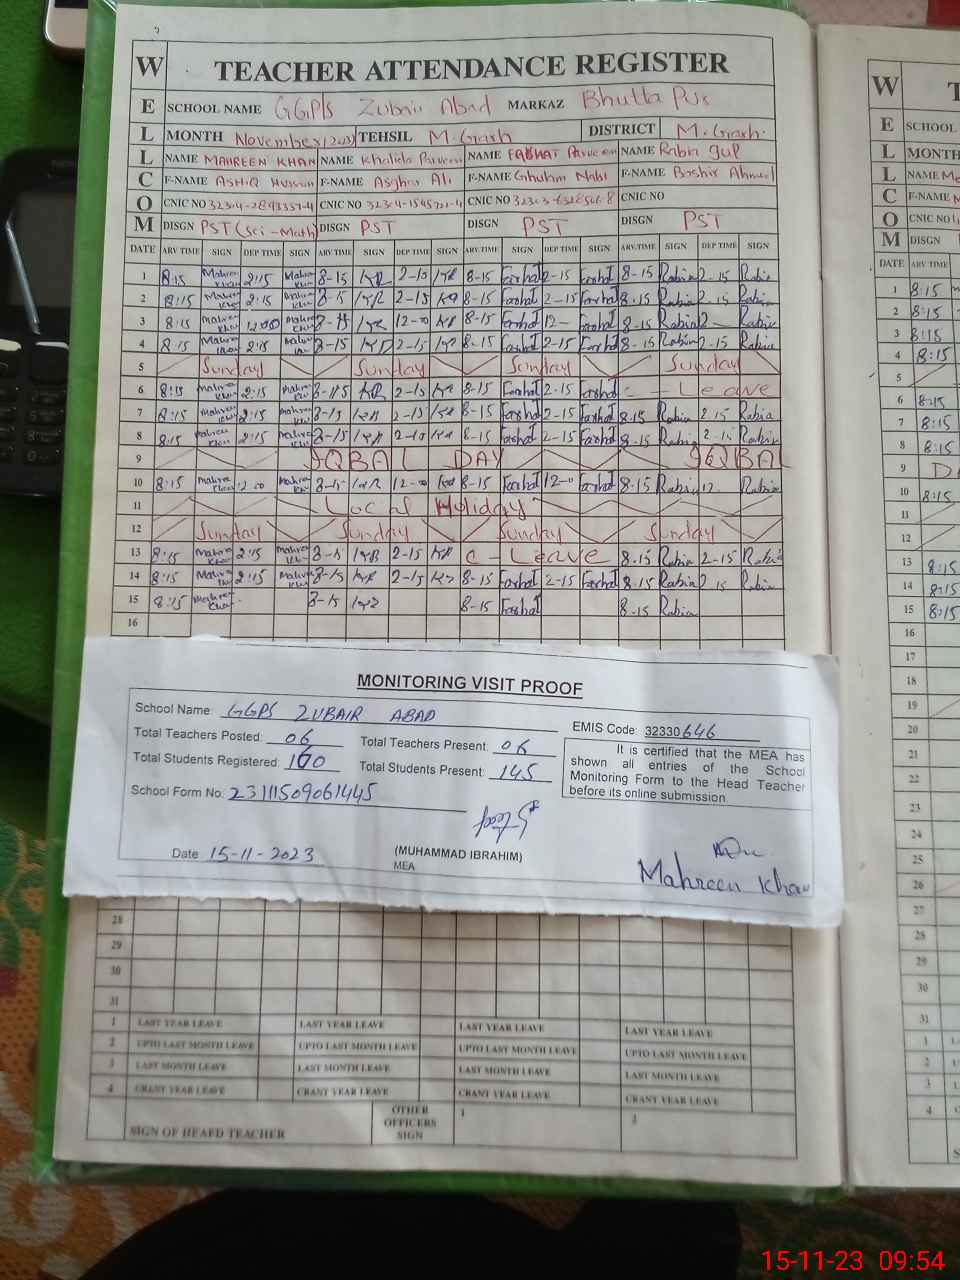 W TEACHER ATTENDANCE REGISTER
E SCHOOL NAME GGP/S Zubair Abad MARKAZ Bhutta Pur
L MONTH November(2023) TEHSIL M.Grarh DISTRICT M.Grarh.
L NAME MAHREEN KHAN NAME Khalida Parveen NAME FARHAT Parveen NAME Rabia gul
C F-NAME ASHIQ Hussain F-NAME Asghar Ali F-NAME Ghulam Nabi F-NAME Bashir Ahmed
O CNIC NO CNIC NO CNIC NO CNIC NO
M DISGN PST (Sci-Math) DISGN PST DISGN PST DISGN PST
DATE ARV TIME SIGN DEP TIME SIGN ARV TIME SIGN DEP TIME SIGN ARV TIME SIGN DEP TIME SIGN ARV.TIME SIGN DEP TIME SIGN
1 8:15 Mahreen Khan 2:15 Mahreen Khan 8-15 2-15 8-15 Farhat 2-15 Farhat 8-15 Rabia 2-15 Rabia
2 8:15 Mahreen Khan 2:15 Mahreen Khan 8-15 2-15 8-15 Farhat 2-15 Farhat 8-15 Rabia 2-15 Rabia
3 8:15 Mahreen Khan 12:00 Mahreen Khan 8-15 12-00 8-15 Farhat 12- Farhat 8-15 Rabia Rabia
4 8:15 Mahreen Khan 2:15 Mahreen Khan 8-15 2-15 8-15 Farhat 2-15 Farhat 8-15 Rabia 2-15 Rabia
5 Sunday Sunday Sunday Sunday
6 8:15 Mahreen Khan 2:15 Mahreen Khan 8-15 2-15 8-15 Farhat 2-15 Farhat C - Leave
7 8:15 Mahreen Khan 2:15 Mahreen Khan 8-15 2-15 8-15 Farhat 2-15 Farhat 8.15 Rabia 2.15 Rabia
8 8:15 Mahreen Khan 2:15 Mahreen Khan 8-15 2-15 8-15 Farhat 2-15 Farhat 8-15 Rabia 2-15 Rabia
9 IQBAL DAY IQBAL
10 8:15 Mahreen Khan 12:00 Mahreen Khan 8-15 12-00 8-15 Farhat 12-0 Farhat 8.15 Rabia 12. Rabia
11 Local Holiday
12 Sunday Sunday Sunday Sunday
13 8:15 Mahreen Khan 2:15 Mahreen Khan 8-15 2-15 C - Leave 8.15 Rabia 2-15 Rabia
14 8:15 Mahreen Khan 2:15 Mahreen Khan 8-15 2-15 8-15 Farhat 2-15 Farhat 8-15 Rabia 2.15 Rabia
15 8:15 Mahreen Khan 8-15 8-15 Farhat 8-15 Rabia
16
MONITORING VISIT PROOF
School Name: GGPS ZUBAIR ABAD EMIS Code: 32330646
Total Teachers Posted: 06 Total Teachers Present: 06
Total Students Registered: 160 Total Students Present: 145
School Form No: 23111509061445
It is certified that the MEA has
shown all entries of the School
Monitoring Form to the Head Teacher
before its online submission.
Date 15-11-2023 (MUHAMMAD IBRAHIM)
MEA
Mahreen Khan
28
29
30
31
1 LAST YEAR LEAVE LAST YEAR LEAVE LAST YEAR LEAVE LAST YEAR LEAVE
2 UPTO LAST MONTH LEAVE UPTO LAST MONTH LEAVE UPTO LAST MONTH LEAVE UPTO LAST MONTH LEAVE
3 LAST MONTH LEAVE LAST MONTH LEAVE LAST MONTH LEAVE LAST MONTH LEAVE
4 CRANT YEAR LEAVE CRANT YEAR LEAVE CRANT YEAR LEAVE CRANT YEAR LEAVE
SIGN OF HEAFD TEACHER OTHER OFFICERS SIGN 1 2
W T
E SCHOOL
L MONTH
L NAME
C F-NAME
O CNIC NO
M DISGN
DATE ARV TIME
1 8:15
2 8:15
3 8:15
4 8:15
5
6 8:15
7 8:15
8 8:15
9
10 8:15
11
12
13 8:15
14 8:15
15 8:15
16
17
18
19
20
21
22
23
24
25
26
27
28
29
30
31
1
2
3
4
15-11-23 09:54